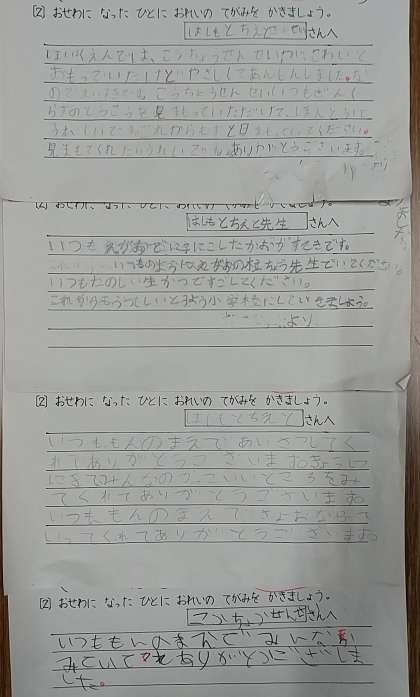 [2] おせわに なった ひとに おれいの てがみを かきましょう。
はしもとちえとせんせい さんへ
ほいくえんでは、こうちょうせんせいって、こわいと
おもっていたけど、やさしくてあんしんしました。な
のでいまでは、こうちょうせんせい、いつもざんく
らすのとうこうを見まもっていただいて、ほんとうに
うれしいです。これからもずっと見まもっていてください。
見まもってくれたらうれしいです。ありがとうございます。
より
[2] おせわに なった ひとに おれいの てがみを かきましょう。
はしもとちえと先生 さんへ
いつもえがおでにこにこしたかおがすてきです。
いつものようにえがおの校ちょう先生でいてくださ
いつもたのしい生かつですごしてください。
これからもうつくしいとよう小学校にしていきましょう。
より
[2] おせわに なった ひとに おれいの てがみを かきましょう。
はしもとちえと さんへ
いつももんのまえであいさつしてく
れてありがとうございます。きょうしつ
にきてみんなのかっこいいところをみ
てくれてありがとうございます。
いつも、もんのまえでさよおならって
いってくれてありがとうございます。
[2] おせわに なった ひとに おれいの てがみを かきましょう。
こうちょうせんせい さんへ
いつももんのまえでみんなが
みていてくれありがとうござしま
した。